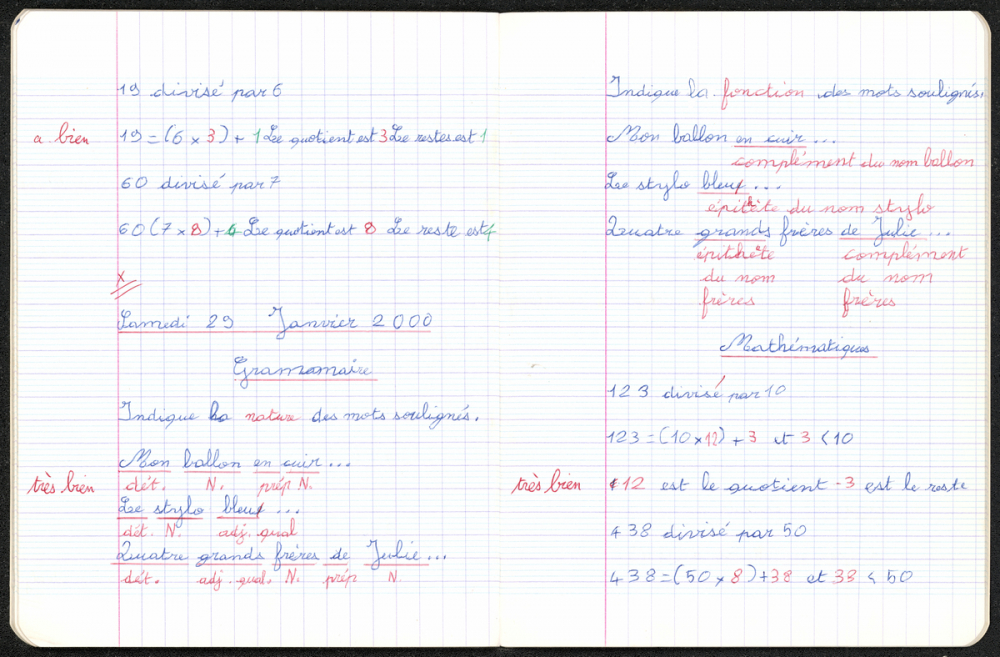 19 divisé par 6
a bien 19 = (6 x 3) + 1 Le quotient est 3 Le restes est 1
60 divisé par 7
60 (7 x 8) + 4 Le quotient est 8 Le reste est 4
x
Samedi 29 Janvier 2000
Grammaire
Indique la nature des mots soulignés.
Mon ballon en cuir ...
très bien dét. N. prép N.
Le stylo bleu ...
dét. N. adj. qual
Quatre grands frères de Julie ...
dét. adj. qual. N. prép N.
Indique la fonction des mots soulignés.
Mon ballon en cuir ...
complément du nom ballon
Le stylo bleu ...
épithète du nom stylo
Quatre grands frères de Julie ...
épithète complément
du nom du nom
frères frères
Mathématiques
123 divisé par 10
123 = (10 x 12) + 3 et 3 < 10
très bien 12 est le quotient - 3 est le reste
438 divisé par 50
438 = (50 x 8) + 38 et 38 < 50